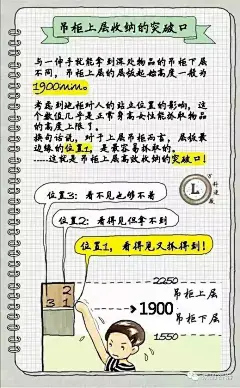 吊柜上层收纳的突破口
与一伸手就能拿到深处物品的吊柜下层
不同，吊柜上层的层板起始高度一般为
1900mm。
考虑到地柜对人的站立位置的影响，这
个数值几乎是正常身高女性能抓取物品
的高度上限了。
换句话说，对于上层吊柜而言，层板最
边缘的位置1，是最容易抓取的。
……这就是吊柜上层高效收纳的突破口！
L
位置3：看不见也够不着
位置2：看得见但拿不到
位置1，看得见又抓得到！
2250
吊柜上层
2
3 1
1900
吊柜下层
1550